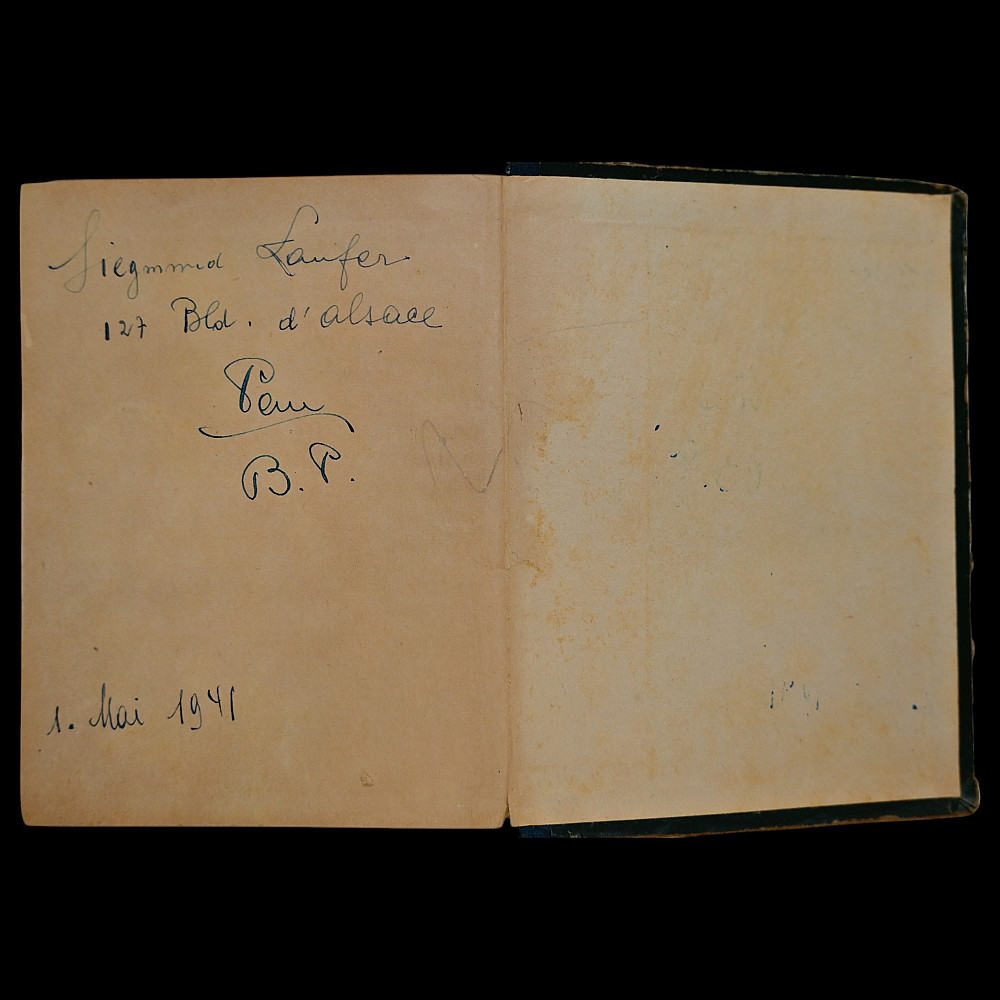 Siegmund Laufer
127 Bld. d'alsace
Pau
B.P.
1. Mai 1941